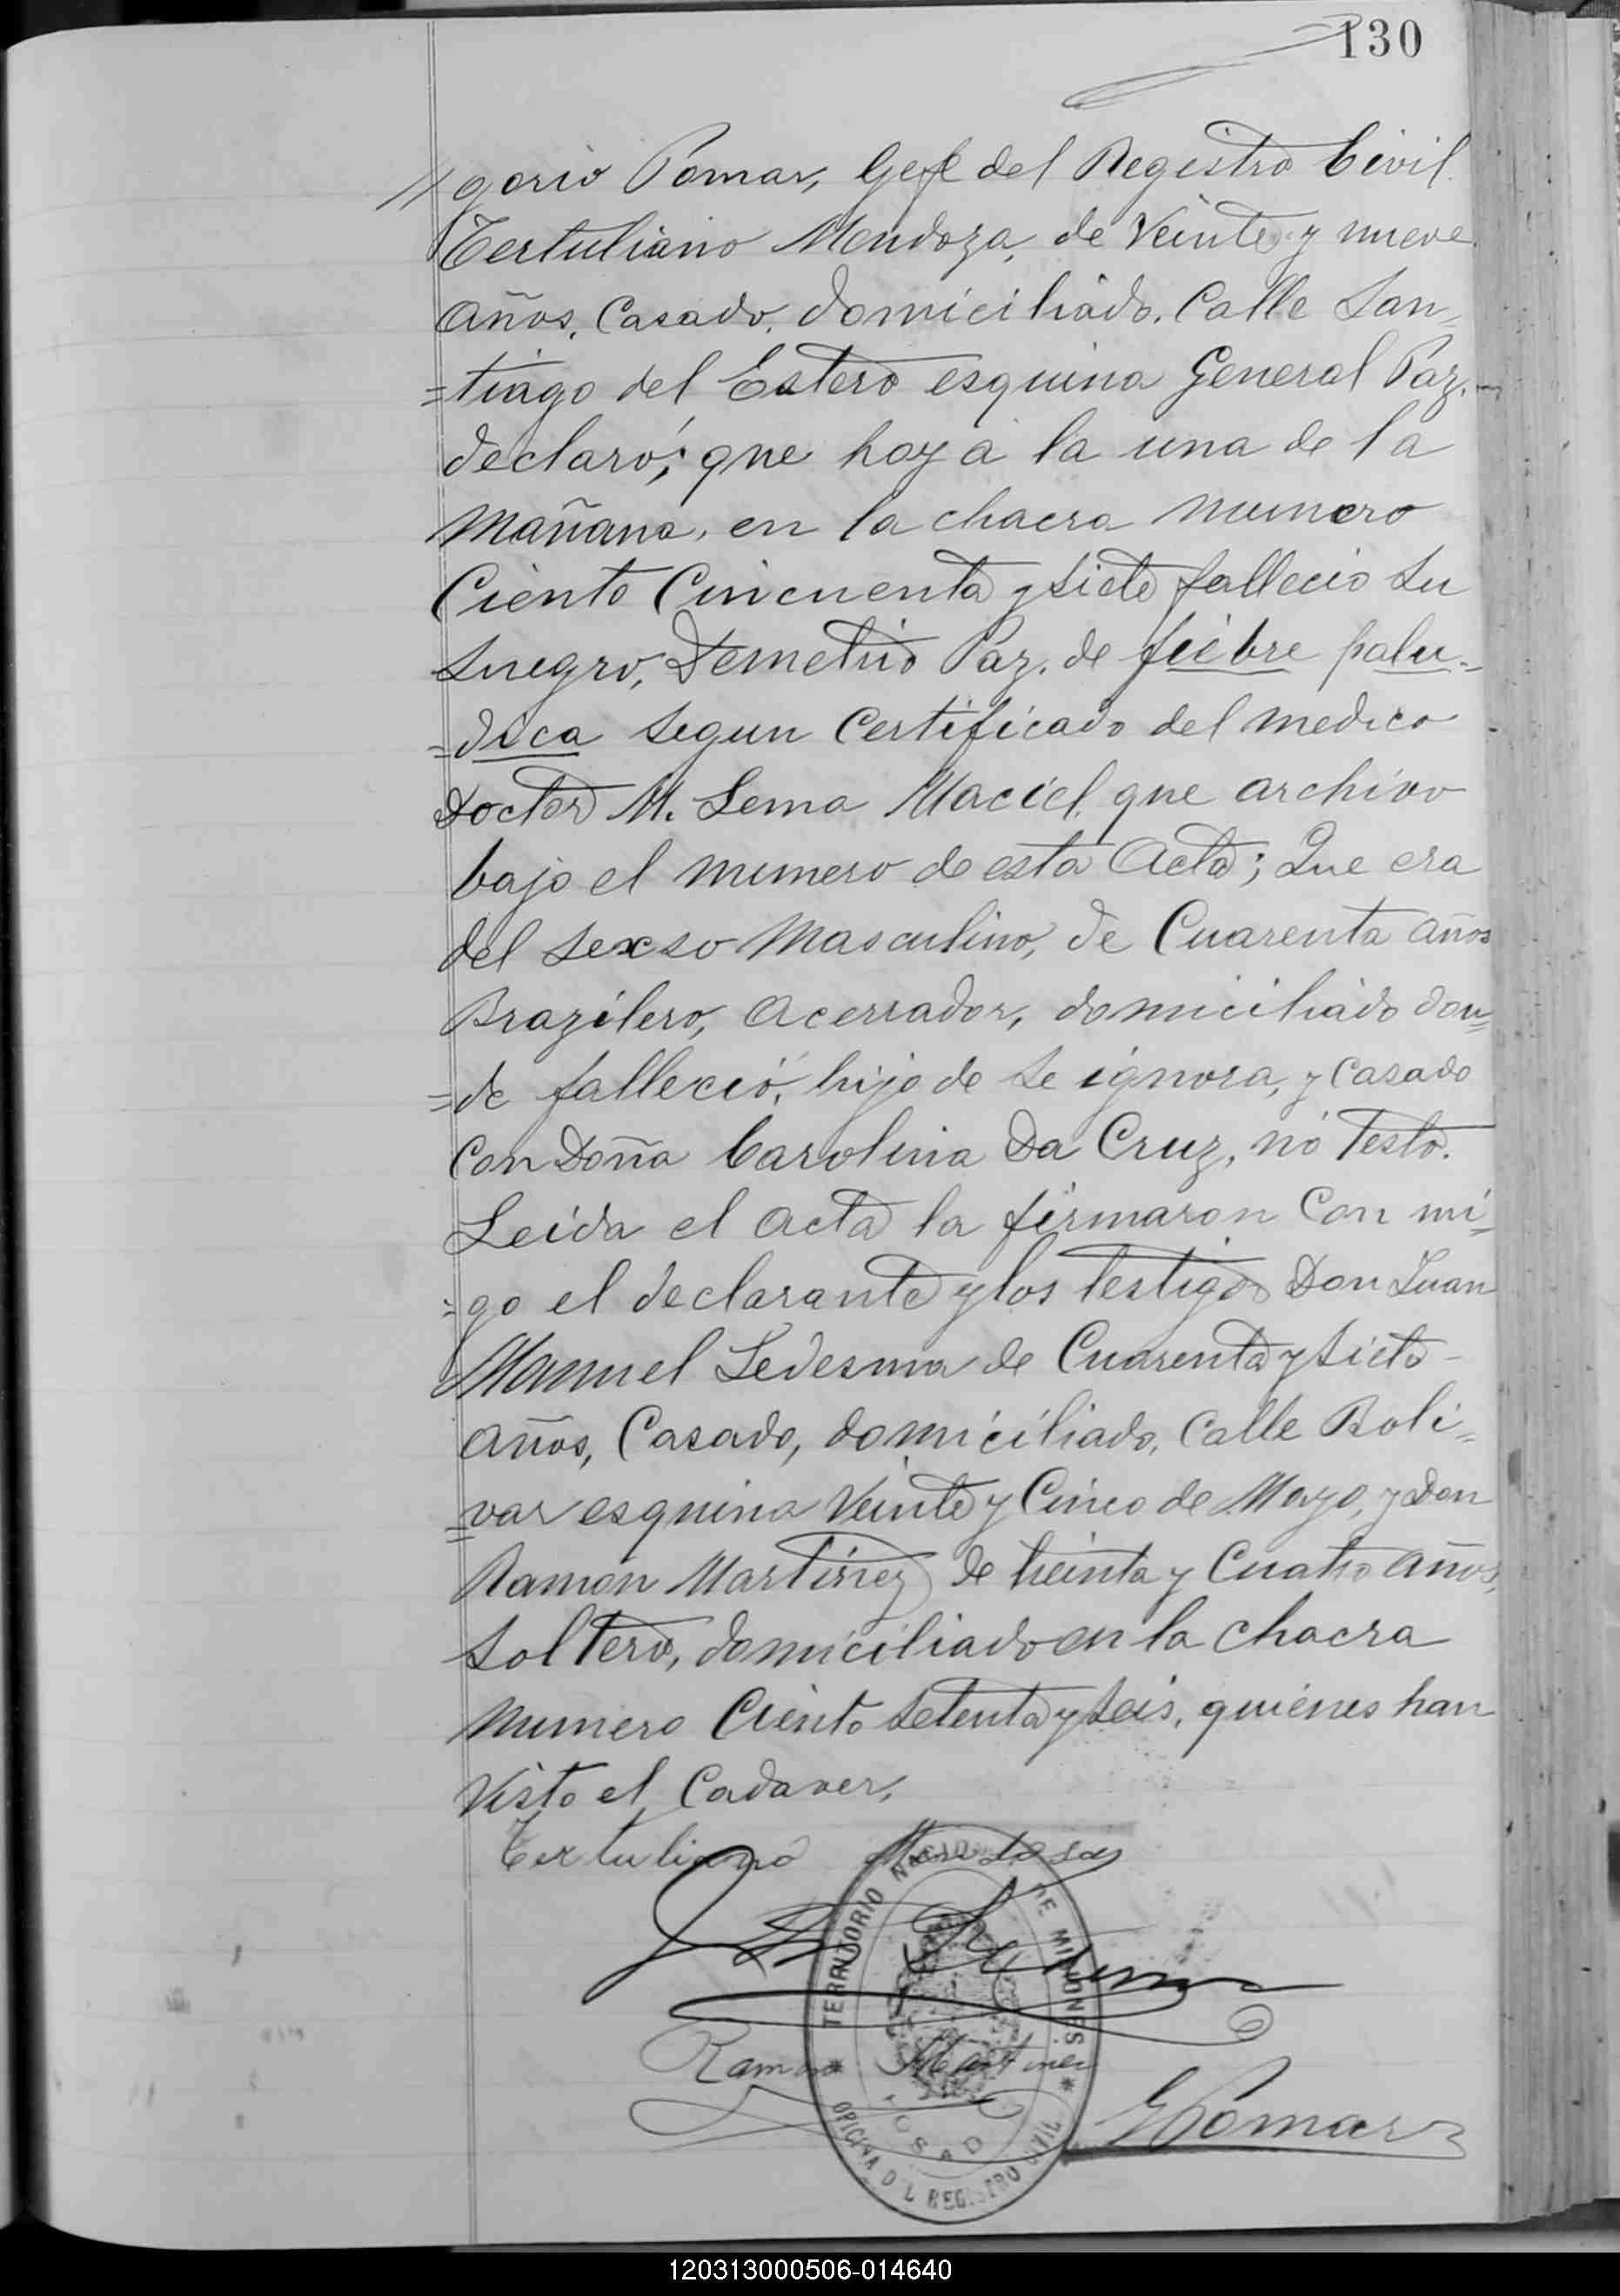 130
//gorio Pomar, Gefe del Registro Civil.
Tertuliano Mendoza, de Veinte y nueve
años, Casado, domiciliado, Calle San=
=tiago del Estero esquina General Paz.-
declaró; que hoy a la una de la
Mañana, en la chacra numero
Ciento Cincuenta y siete fallecio su
suegro, Demetrio Paz, de fiebre palu=
=dica segun Certificado del medico
Doctor M. Lema Maciel, que archivo
bajo el numero de esta Acta; Que era
del sexso Masculino, de Cuarenta años
Brazilero, acerrador, domiciliado don=
=de falleció, hijo de se ignora, y casado
Con Doña Carolina Da Cruz, no Testo.
Leida el acta la firmaron Con mi=
=go el declarante y los testigos Don Juan
Manuel Ledesma de Cuarenta y siete-
años, Casado, domiciliado, Calle Boli=
=var esquina Veinte y Cinco de Mayo, y Don
Ramón Martinez de treinta y Cuatro años,
Soltero, domiciliado en la chacra
numero Ciento setenta y seis, quienes han
Visto el Cadaver,
Tertuliano Mendosa
Ramon Martinez
GPomar
TERRITORIO NACIONAL DE MISIONES
POSADAS
OFICINA DEL REGISTRO CIVIL
120313000506-014640